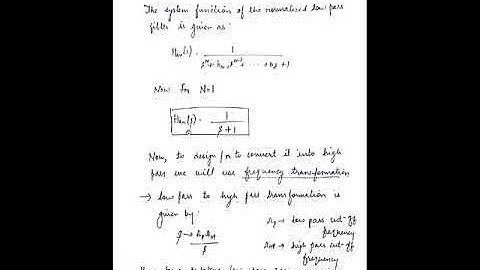 The system function of the normalised low pass
filter is given as:
H_an(s) = 1 / s^N + b_N-1 s^N-1 + ... + b_1 s + 1
Now for N=1
H_an(s) = 1 / s+1
Now, to design / or to convert it into high
pass we will use frequency transformation
→ low pass to high pass transformation is
given by:
s → Ω_p Ω_HP / s
Ω_p → low pass cut-off
frequency
Ω_HP → high pass cut-off
frequency